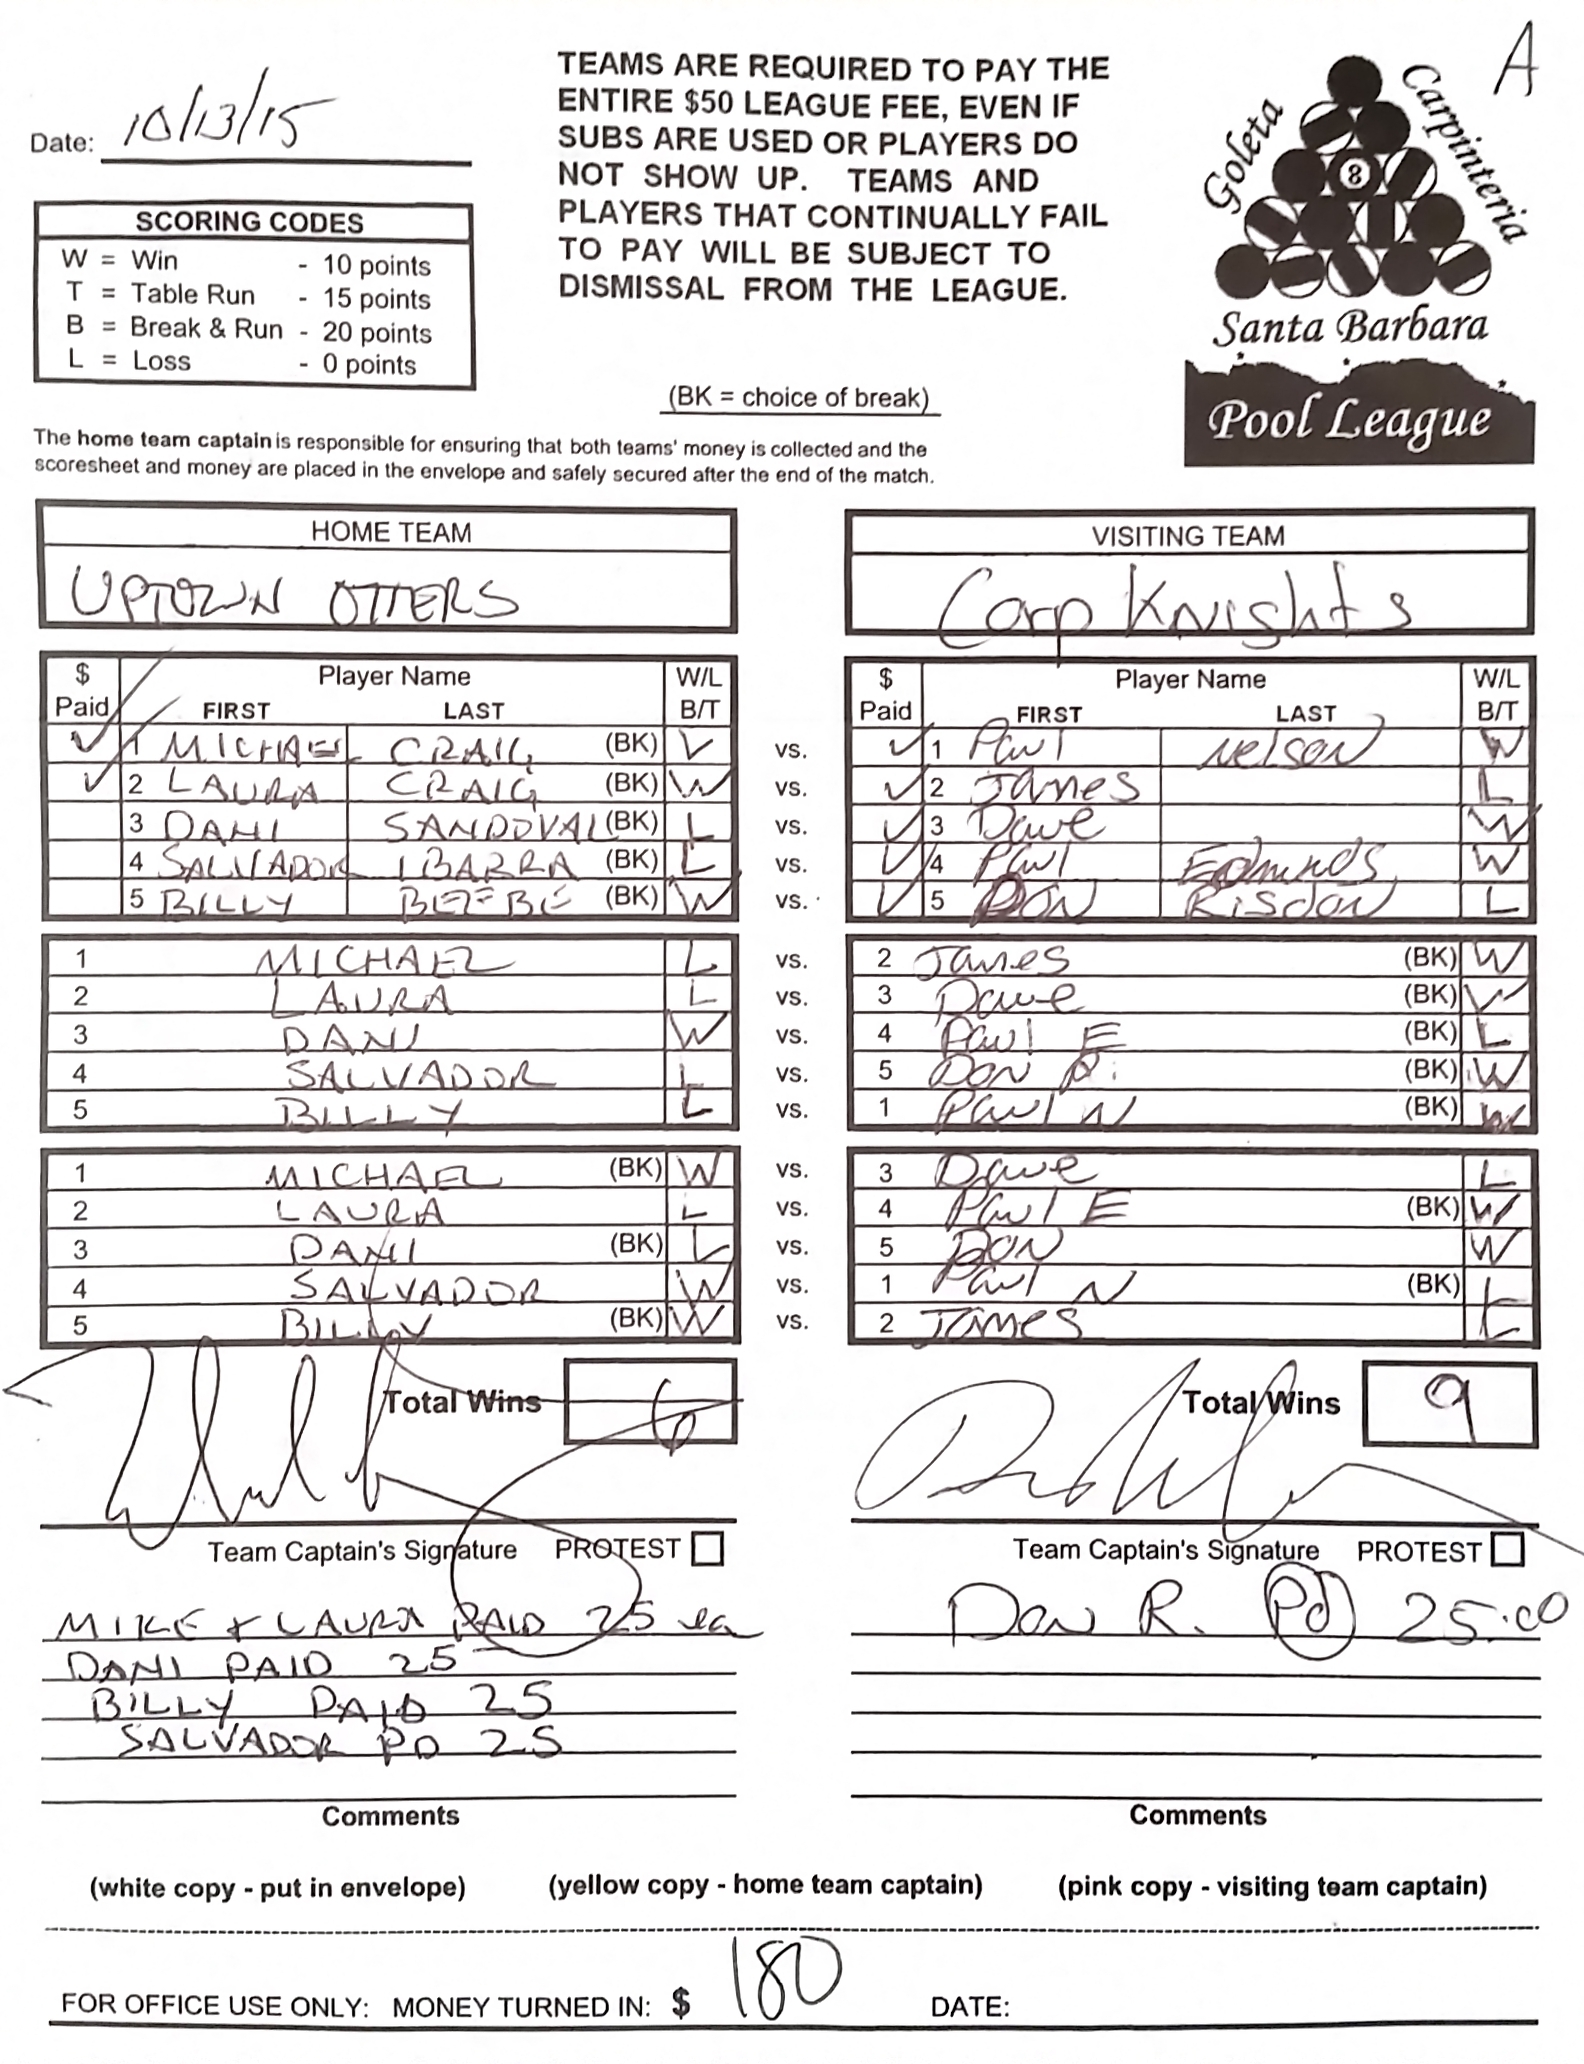 A
Date: 10/13/15
TEAMS ARE REQUIRED TO PAY THE
ENTIRE $50 LEAGUE FEE, EVEN IF
SUBS ARE USED OR PLAYERS DO
NOT SHOW UP. TEAMS AND
PLAYERS THAT CONTINUALLY FAIL
TO PAY WILL BE SUBJECT TO
DISMISSAL FROM THE LEAGUE.
Goleta
Carpinteria
8
Santa Barbara
Pool League
SCORING CODES
W = Win - 10 points
T = Table Run - 15 points
B = Break & Run - 20 points
L = Loss - 0 points
(BK = choice of break)
The home team captain is responsible for ensuring that both teams' money is collected and the
scoresheet and money are placed in the envelope and safely secured after the end of the match.
HOME TEAM VISITING TEAM
UPTOWN OTTERS Carp Knights
$ Player Name W/L $ Player Name W/L
Paid FIRST LAST B/T Paid FIRST LAST B/T
✓ 1 MICHAEL CRAIG (BK) L vs. ✓ 1 Paul Nelson W
✓ 2 LAURA CRAIG (BK) W vs. ✓ 2 James L
3 DANI SANDOVAL (BK) L vs. ✓ 3 Dave W
4 SALVADOR IBARRA (BK) L vs. ✓ 4 Paul Edmunds W
5 BILLY BEEBE (BK) W vs. ✓ 5 DON RISDON L
1 MICHAEL L vs. 2 James (BK) W
2 LAURA L vs. 3 Dave (BK) W
3 DANI W vs. 4 Paul E (BK) L
4 SALVADOR L vs. 5 DON R. (BK) W
5 BILLY L vs. 1 Paul N (BK) W
1 MICHAEL (BK) W vs. 3 Dave L
2 LAURA L vs. 4 Paul E (BK) W
3 DANI (BK) L vs. 5 DON W
4 SALVADOR W vs. 1 Paul N (BK) L
5 BILLY (BK) W vs. 2 James L
Total Wins 6 Total Wins 9
Team Captain's Signature PROTEST Team Captain's Signature PROTEST
MIKE + LAURA PAID 25 ea Don R. Pd 25.00
DANI PAID 25
BILLY PAID 25
SALVADOR PD 25
Comments Comments
(white copy - put in envelope) (yellow copy - home team captain) (pink copy - visiting team captain)
FOR OFFICE USE ONLY: MONEY TURNED IN: $ 180 DATE: